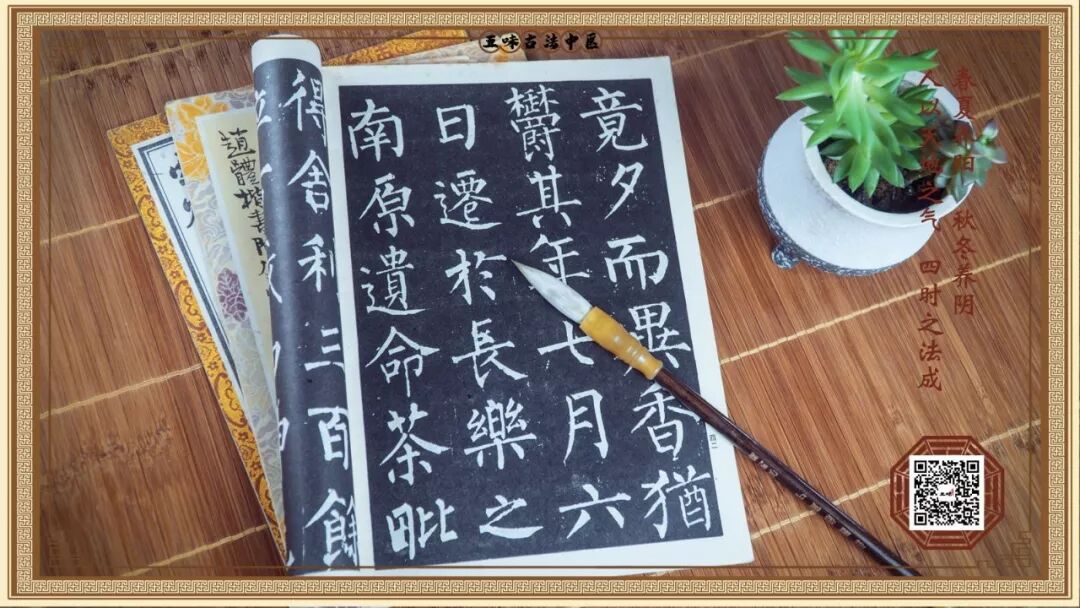 五味古法中医
春夏养阳 秋冬养阴
人以天地之气 四时之法成
竟夕而異香猶
欝其年七月六
日遷於長樂之
南原遺命茶毗
得舍利三百餘
四二